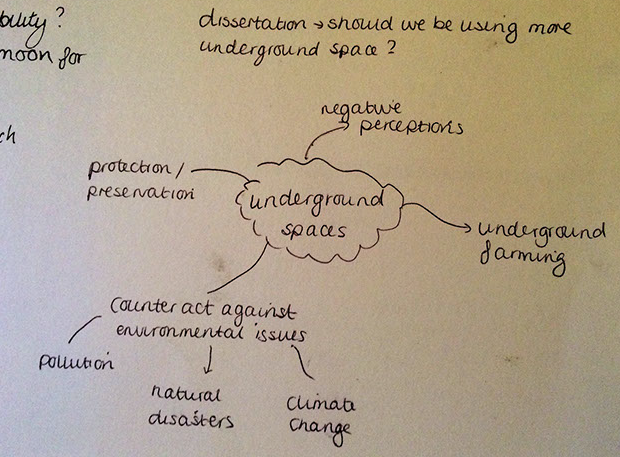 bility?
moon for
ch
dissertation → should we be using more
underground space?
negative
perceptions
protection/
preservation
underground
spaces
underground
farming
counter act against
environmental issues
pollution
natural
disasters
climate
change